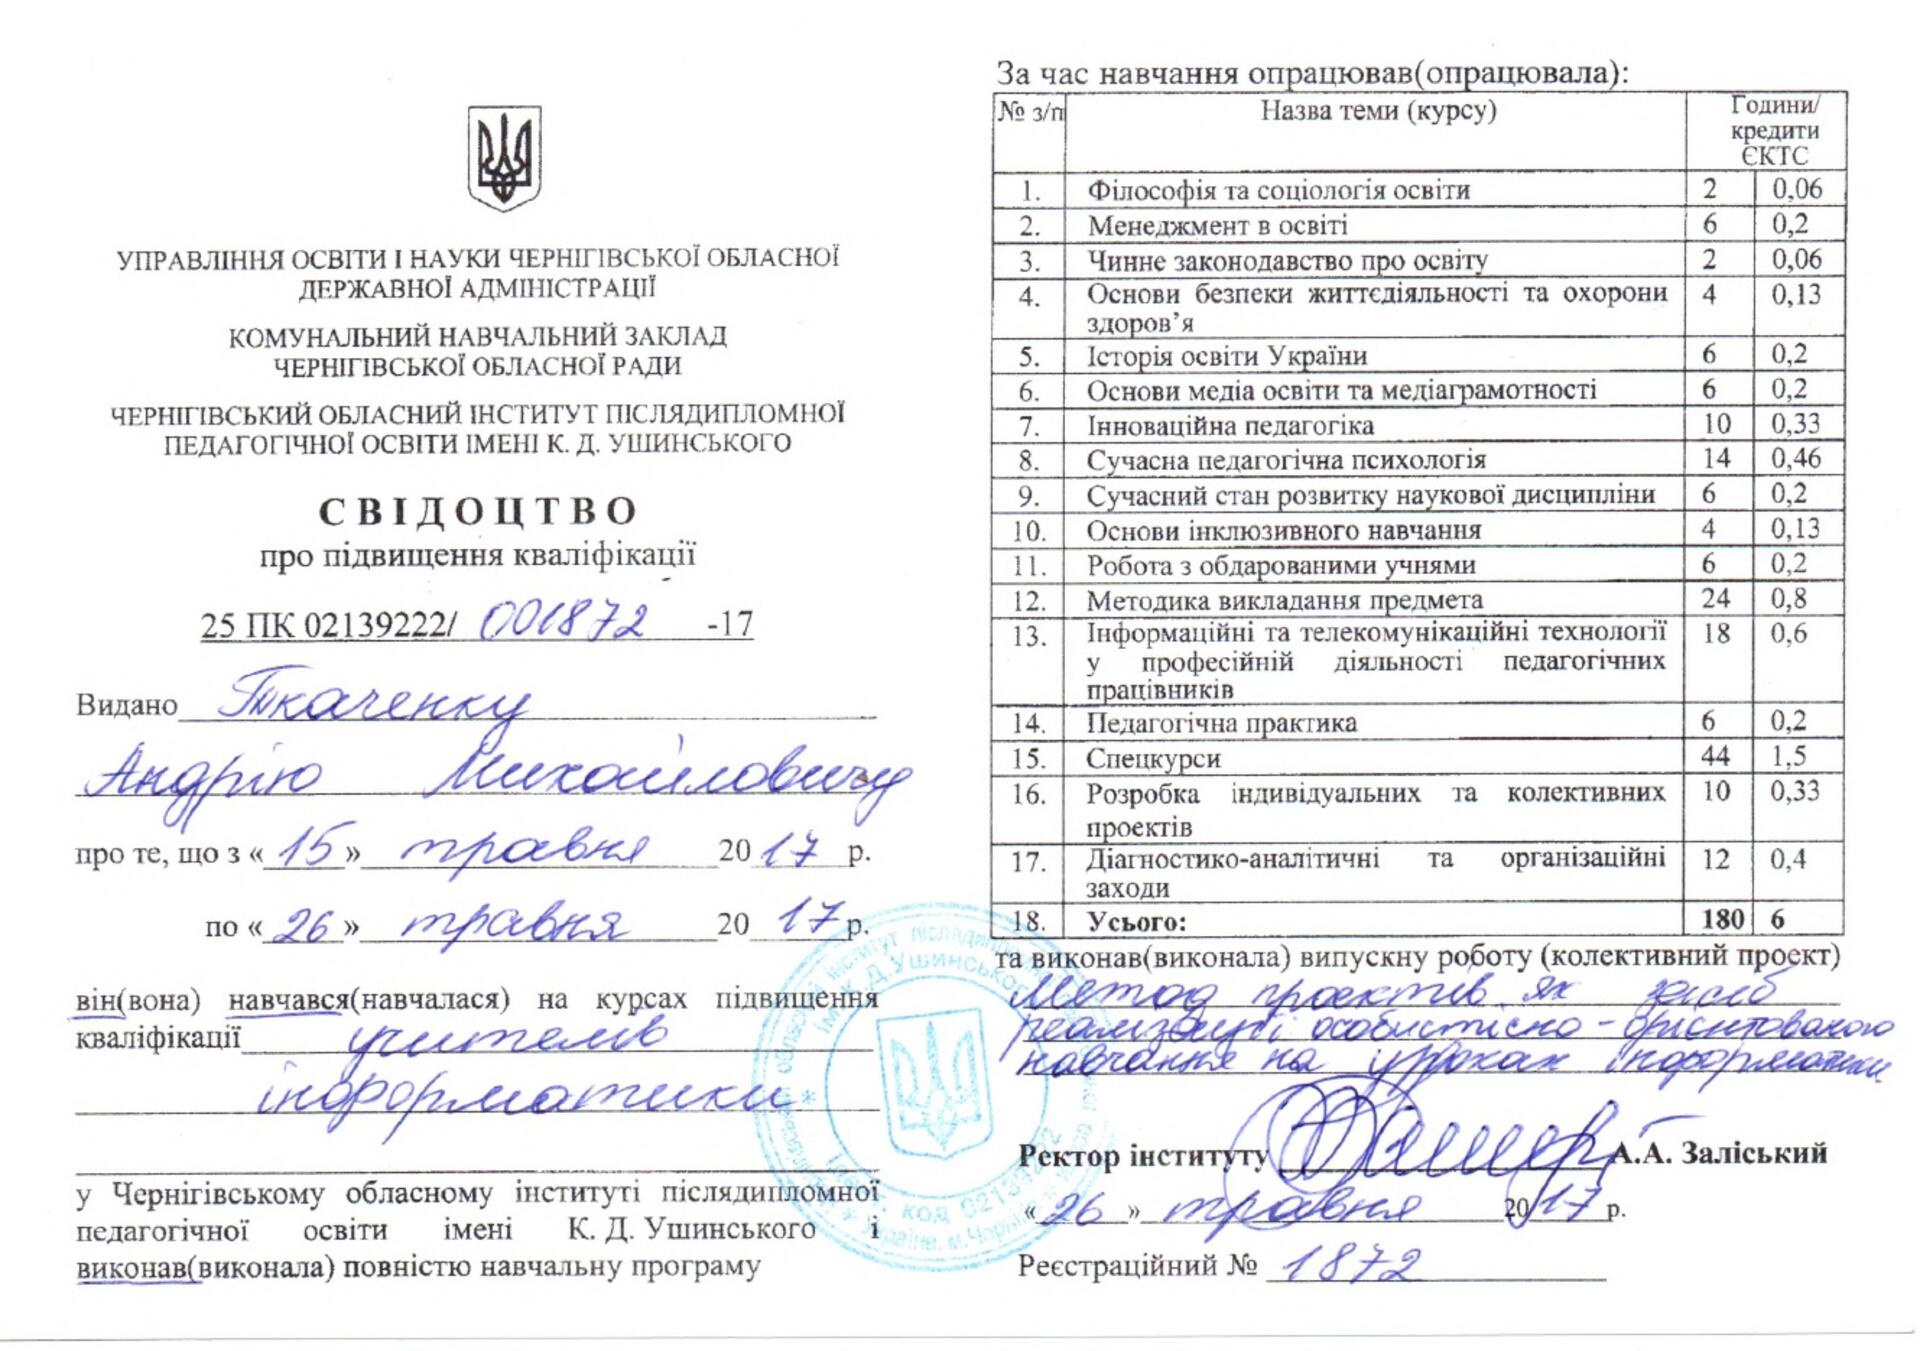 УПРАВЛІННЯ ОСВІТИ І НАУКИ ЧЕРНІГІВСЬКОЇ ОБЛАСНОЇ
ДЕРЖАВНОЇ АДМІНІСТРАЦІЇ
КОМУНАЛЬНИЙ НАВЧАЛЬНИЙ ЗАКЛАД
ЧЕРНІГІВСЬКОЇ ОБЛАСНОЇ РАДИ
ЧЕРНІГІВСЬКИЙ ОБЛАСНИЙ ІНСТИТУТ ПІСЛЯДИПЛОМНОЇ
ПЕДАГОГІЧНОЇ ОСВІТИ ІМЕНІ К. Д. УШИНСЬКОГО
СВІДОЦТВО
про підвищення кваліфікації
25 ПК 02139222/ 001872 -17
Видано Ткаченку
Андрію Михайловичу
про те, що з «15» травня 2017 р.
по «26» травня 2017 р.
він(вона) навчався(навчалася) на курсах підвищення
кваліфікації учителів
інформатики
у Чернігівському обласному інституті післядипломної
педагогічної освіти імені К. Д. Ушинського і
виконав(виконала) повністю навчальну програму
За час навчання опрацював(опрацювала):
№ з/п Назва теми (курсу) Години/
кредити
ЄКТС
1. Філософія та соціологія освіти 2 0,06
2. Менеджмент в освіті 6 0,2
3. Чинне законодавство про освіту 2 0,06
4. Основи безпеки життєдіяльності та охорони 4 0,13
здоров’я
5. Історія освіти України 6 0,2
6. Основи медіа освіти та медіаграмотності 6 0,2
7. Інноваційна педагогіка 10 0,33
8. Сучасна педагогічна психологія 14 0,46
9. Сучасний стан розвитку наукової дисципліни 6 0,2
10. Основи інклюзивного навчання 4 0,13
11. Робота з обдарованими учнями 6 0,2
12. Методика викладання предмета 24 0,8
13. Інформаційні та телекомунікаційні технології 18 0,6
у професійній діяльності педагогічних
працівників
14. Педагогічна практика 6 0,2
15. Спецкурси 44 1,5
16. Розробка індивідуальних та колективних 10 0,33
проектів
17. Діагностико-аналітичні та організаційні 12 0,4
заходи
18. Усього: 180 6
та виконав(виконала) випускну роботу (колективний проект)
Метод проектів як засіб
реалізації особистісно-орієнтованого
навчання на уроках інформатики
Ректор інституту А.А. Заліський
«26» травня 2017 р.
Реєстраційний № 1872